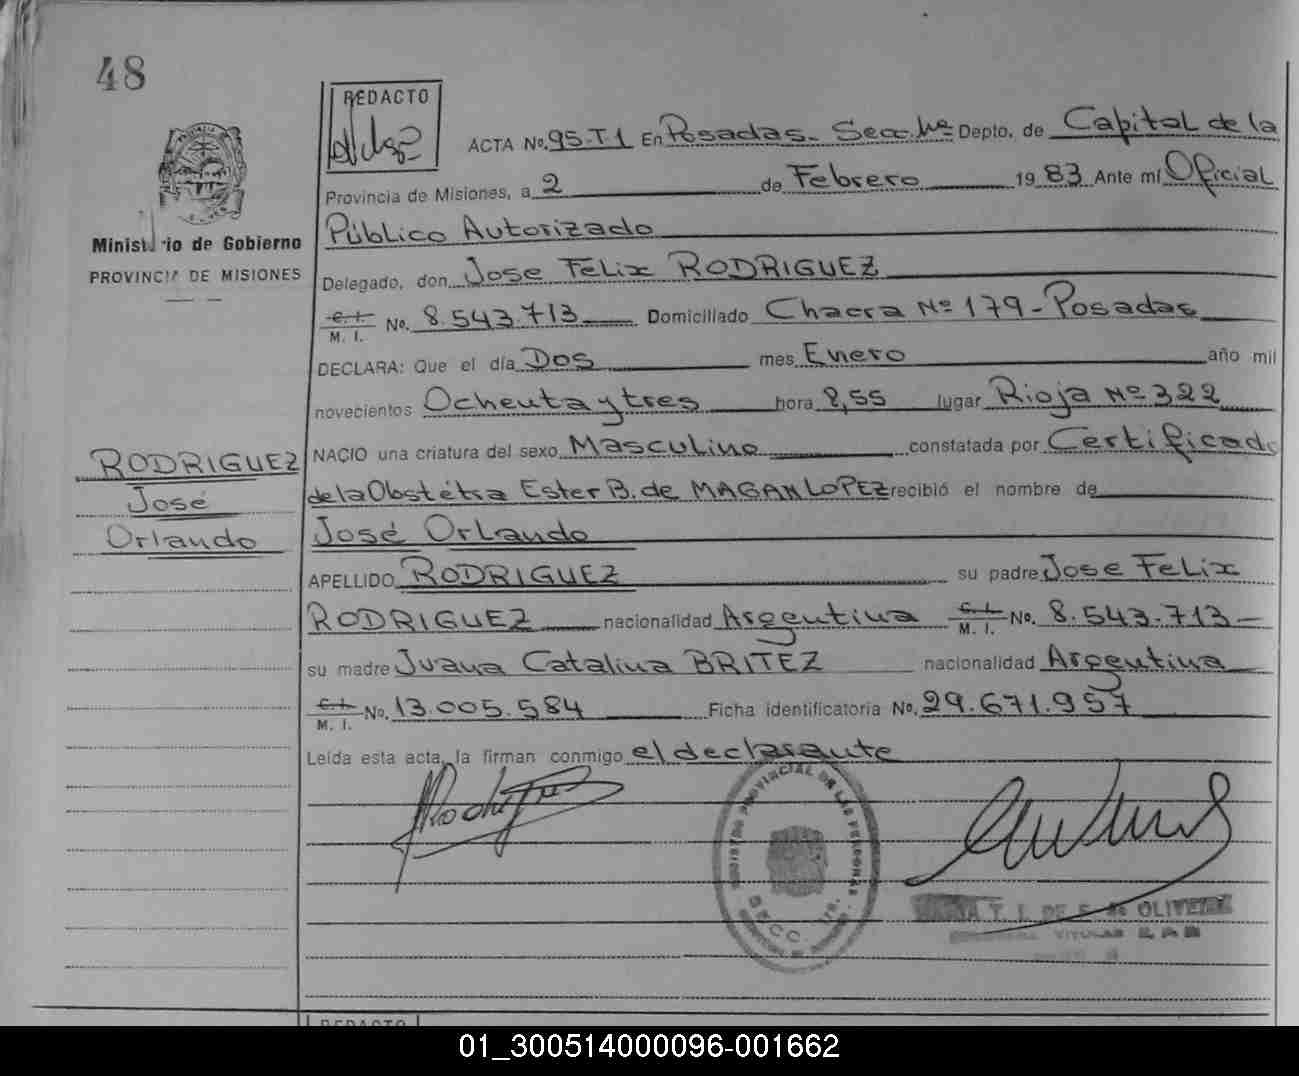 48
REDACTO
ACTA No. 95-T-1 En Posadas- Secc. 1ra Depto. de Capital de la
Provincia de Misiones, a 2 de Febrero 1983 Ante mí Oficial
Público Autorizado
Ministerio de Gobierno
PROVINCIA DE MISIONES
Delegado, don Jose Felix RODRIGUEZ
C. I. M. I. No. 8.543.713 Domiciliado Chacra Nº 179-Posadas
DECLARA: Que el día Dos mes Enero año mil
novecientos Ochenta y tres hora 8,55 lugar Rioja Nº 322
NACIO una criatura del sexo Masculino constatada por Certificado
de la Obstétra Ester B. de MAGAN LOPEZ recibió el nombre de
José Orlando
RODRIGUEZ
José
Orlando
APELLIDO RODRIGUEZ su padre Jose Felix
RODRIGUEZ nacionalidad Argentina C. I. M. I. No. 8.543.713-
su madre Juana Catalina BRITEZ nacionalidad Argentina
C. I. M. I. No. 13.005.584 Ficha identificatoria No. 29.671.957
Leída esta acta, la firman conmigo el declarante
REGISTRO PROVINCIAL DE LAS PERSONAS
SECC. 1ra.
T. I. DE OLIVEIRA
TITULAR
REDACTO
01_300514000096-001662